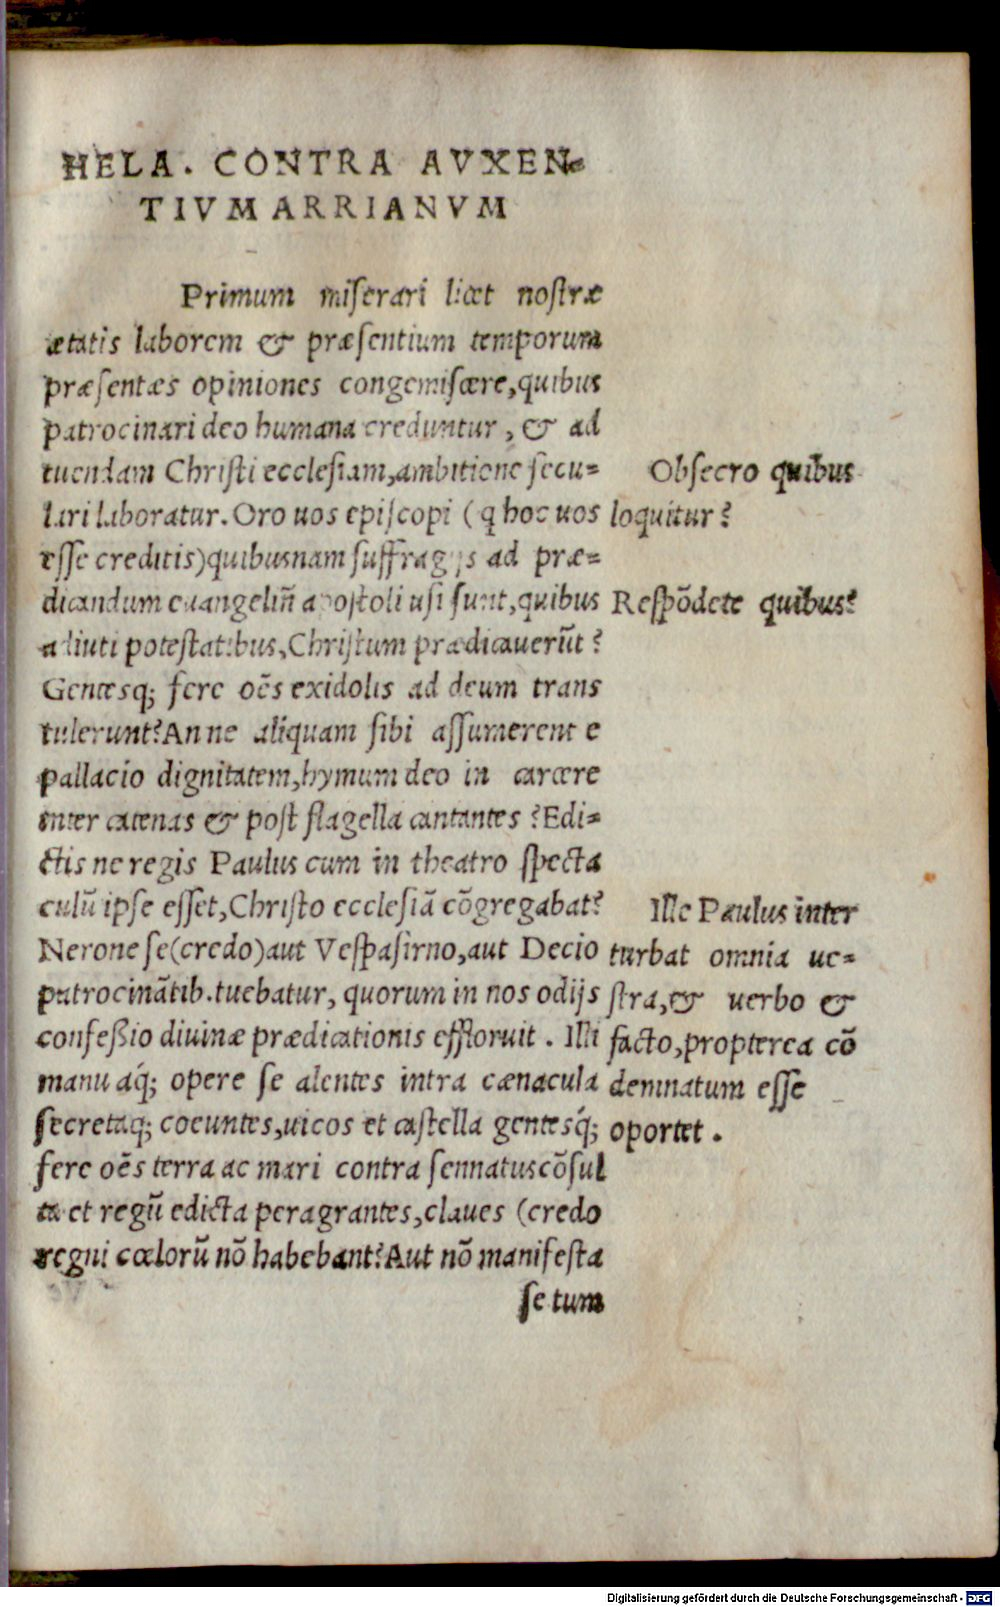 HELA. CONTRA AVXEN=
TIVM ARRIANVM
Primum miserari licet nostræ
ætatis laborem & præsentium temporum
præsentæs opiniones congemiscere, quibus
patrocinari deo humana creduntur, & ad
tuendam Christi ecclesiam, ambitione secu=
lari laboratur. Oro uos episcopi (q hoc uos
esse creditis) quibusnam suffragijs ad præ=
dicandum euangeliũ apostoli usi sunt, quibus
adiuti potestatibus, Christum prædicauerũt?
Gentesq; fere oẽs exidolis ad deum trans
tulerunt? An ne aliquam sibi assumerent e
pallacio dignitatem, hymum deo in carcere
inter catenas & post flagella cantantes? Edi=
ctis ne regis Paulus cum in theatro specta
culũ ipse esset, Christo ecclesiã cõgregabat?
Nerone se (credo) aut Vespasirno, aut Decio
patrocinãtib. tuebatur, quorum in nos odijs
confeßio diuinæ prædicationis effloruit. Illi
manu aq́; opere se alentes intra cænacula
secretaq; coeuntes, uicos et castella gentesq́;
fere oẽs terra ac mari contra sennatuscõsul
ta et regũ edicta peragrantes, claues (credo
regni cœlorũ nõ habebant? Aut nõ manifesta
se tum
Obsecro quibus
loquitur?
Respõdete quibus?
Ille Paulus inter
turbat omnia ue=
stra, & uerbo &
facto, propterea cõ
demnatum esse
oportet.
Digitalisierung gefördert durch die Deutsche Forschungsgemeinschaft - DFG